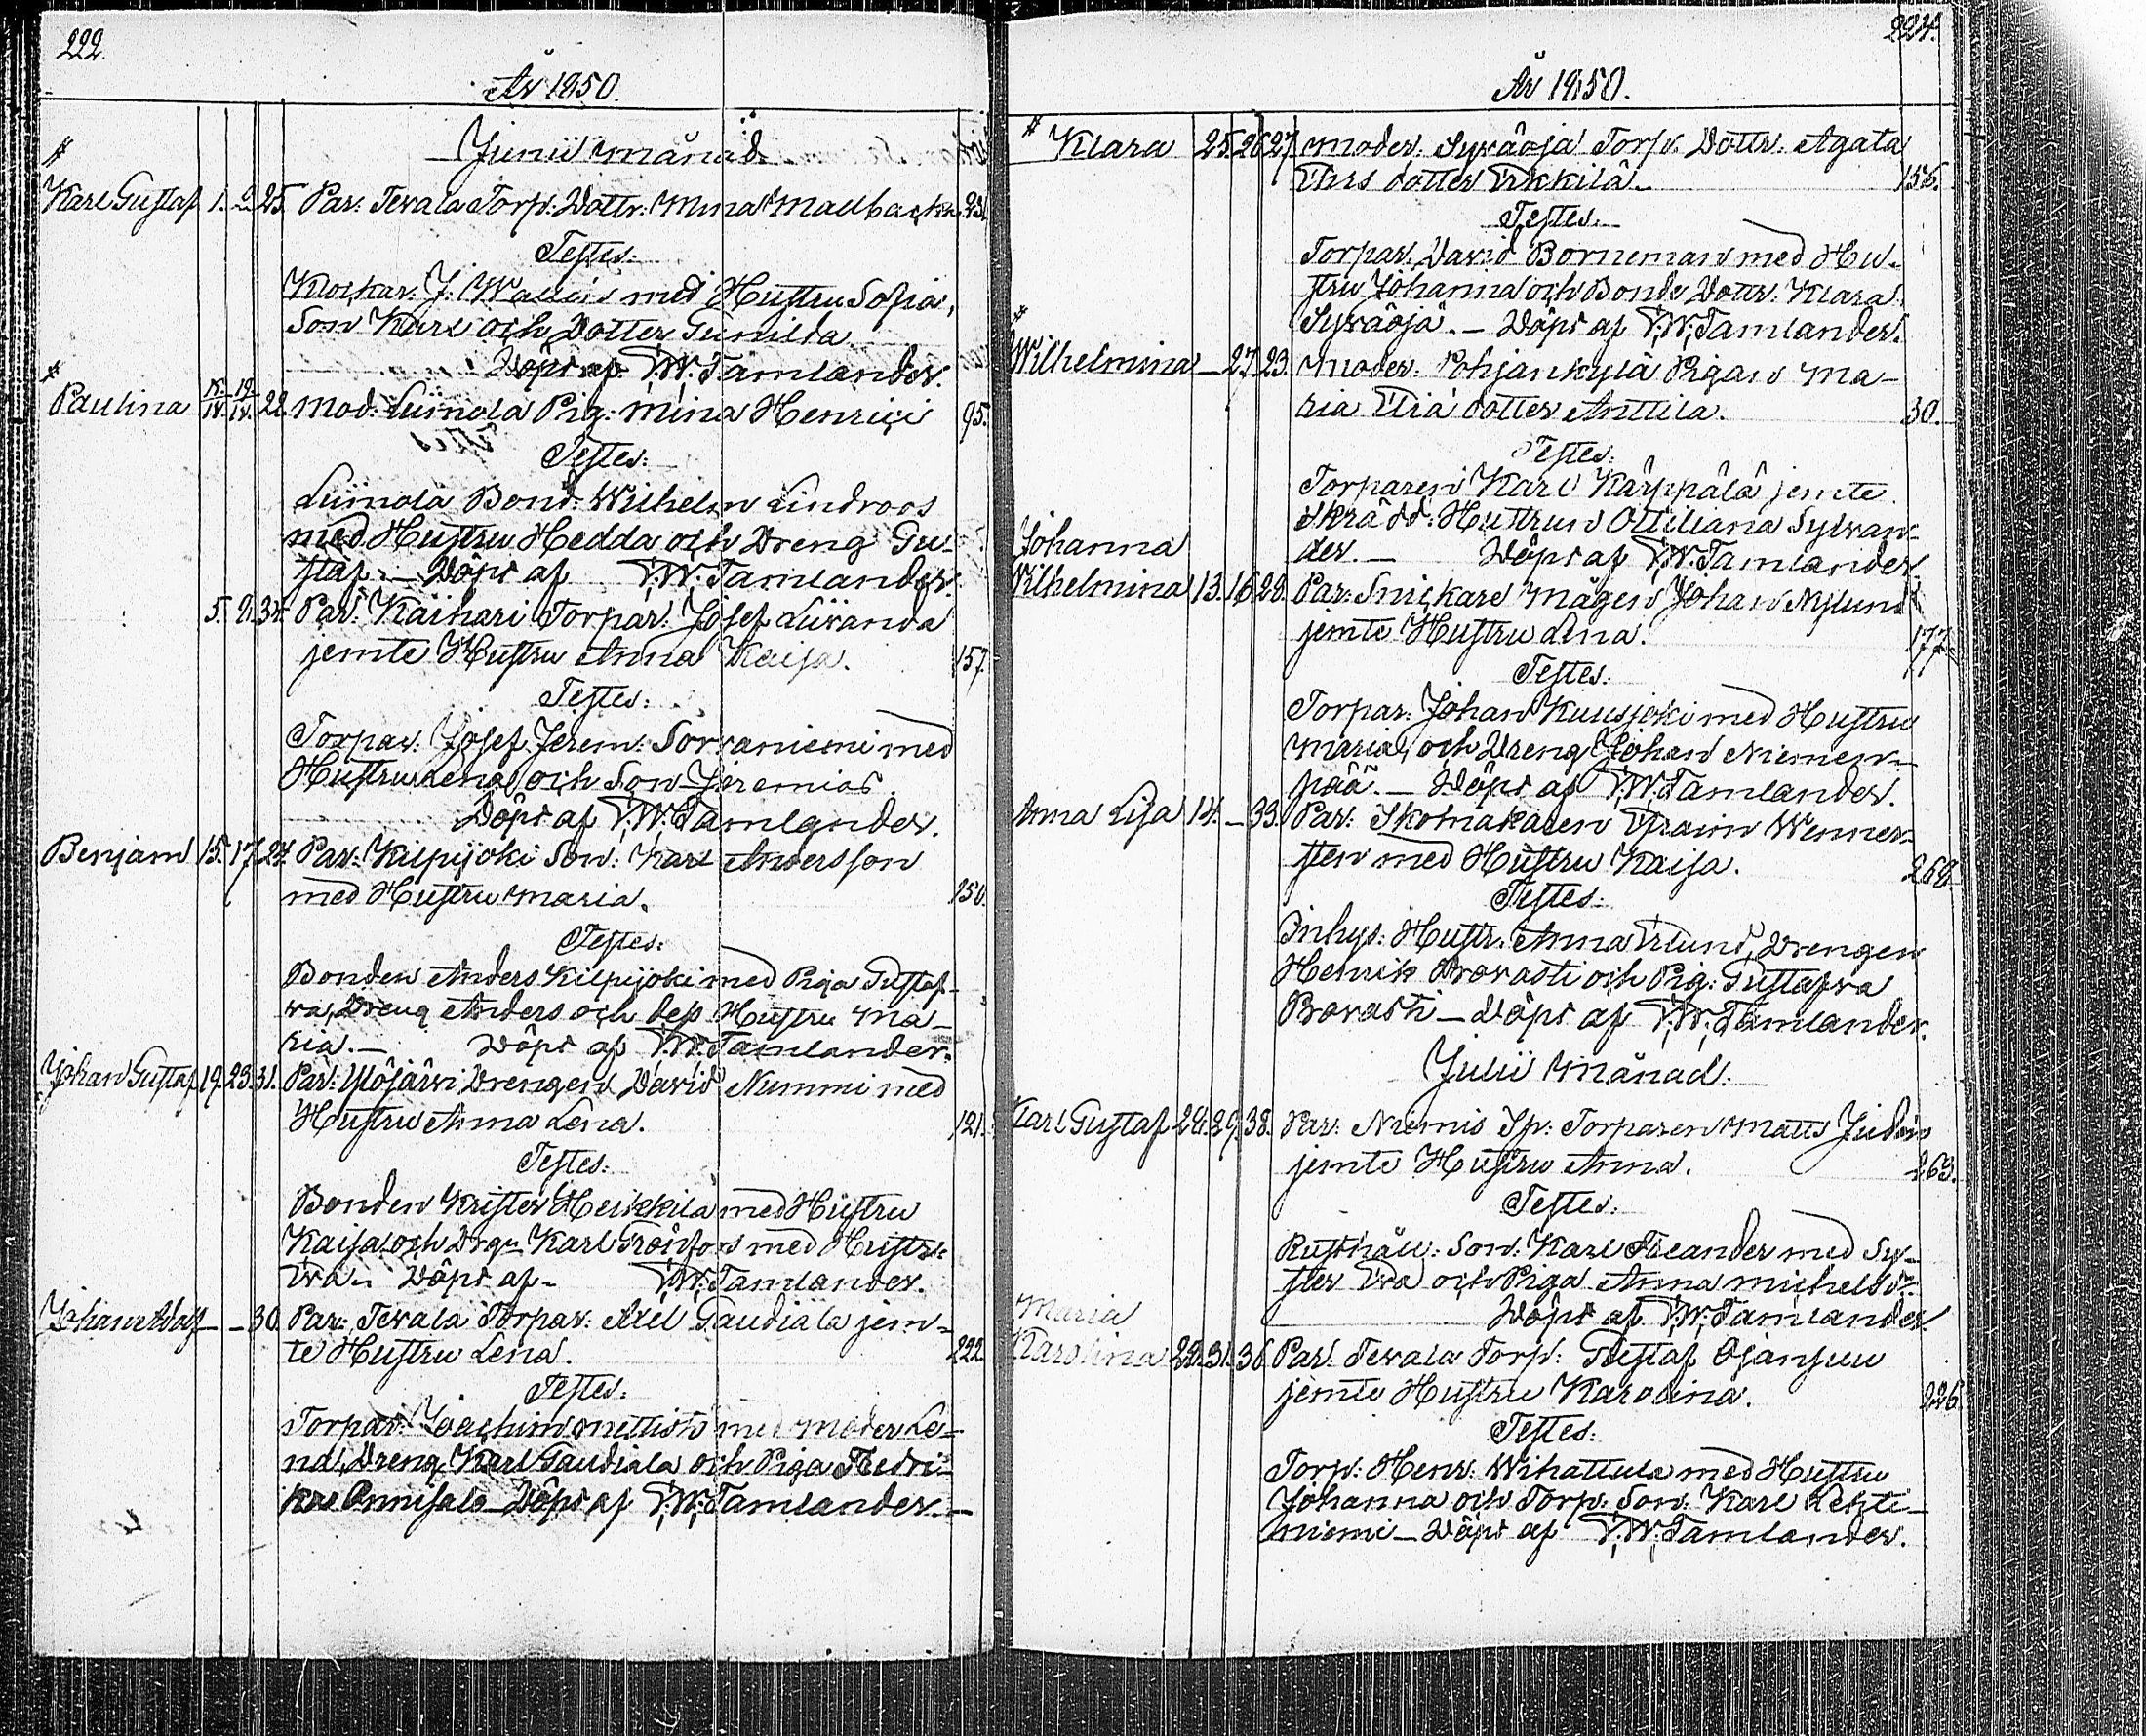 222.
År 1850.
Junii månad.
#
Karl Gustaf 1. 2. 25. Par: Tevala Torp: Dottr: Mina Mallbacka 231.
Testes:
Klockar: J. Wallin med Hustru Sofia,
Son Karl och Dotter Gunilda
Döpt af T. W. Tamlander.
#
Paulina 15/IV. 19/IV. 28. Mod: Liinola Pig: Mina Henrici 95.
Testes:
Liinola Bond: Wilhelm Lindroos
med Hustru Hedda och Dreng Gu-
staf. – Döpt af T. W. Tamlander.
5. 9. 34. Par: Kaihari Torpar: Josef Liiranda
jemte Hustru Anna Kaisa. 157.
Testes:
Torpar: Josef Jerem: Sorvaniemi med
Hustru Lena och Son Jeremias.
Döpt af T. W. Tamlander.
Benjam 15. 17. 24. Par: Kilpijoki Son: Karl Andersson
med Hustru Maria. 150.
Testes:
Bonden Anders Kilpijoki med Piga Gustaf-
va, Dreng Anders och dess Hustru Ma-
ria. – Döpt af T. W. Tamlander.
Johan Gustaf 19. 23. 31. Par: Ylöjärvi Drengen David Nummi med
Hustru Anna Lena. 121.
Testes:
Bonden Krister Heikkila med Hustru
Kaisa och Drgn Karl Grönfors med Hustr:
Eva. – Döpt af – T. W. Tamlander.
Johan Adolf – – 30. Par: Tevala Torpar: Axel Gaudiala jem-
te Hustru Lena. 222.
Testes:
Torpar: Joachim Mettisto med Moder Le-
na, Dreng Karl Gaudiala och Piga Fredri-
ka Annisala – Döpt af T. W. Tamlander. –
224.
År 1850.
# Klara 25. 26. 27. Moder: Syväoja Torp: Dottr: Agata
Thurs dotter Erkkilä. 156.
Testes:
Torpar: David Borneman med Hu-
stru Johanna och Bonde Dottr: Klara
Syväoja. – Döpt af T. W. Tamlander.
#
Wilhelmina – 27. 23. Moder: Pohjankylä Pigan Ma-
ria Elia dotter Anttila. 30.
Testes:
Torparen Karl Kärppälä jemte
Skrädd: Hustrun Ottiliana Sylvan-
der. – Döpt af T. W. Tamlander.
Johanna
Wilhelmina 13. 16. 28. Par: Snickare Mågen Johan Nylund
jemte Hustru Lena. 177.
Testes:
Torpar: Johan Kuusjoki med Hustru
Maria, och Dreng Johan Niemen-
pää. – Döpt af T. W. Tamlander.
Anna Lisa 14. – 33. Par: Skomakaren Efraim Wenner-
sten med Hustru Kaisa. 268.
Testes:
Inhys: Hustr: Anna Erlund, Drengen
Henrik Provasti och Pig: Gustafva
Provasti – Döpt af T. W. Tamlander.
Julii Månad.
Karl Gustaf 24. 29. 38. Par: Niemis Sp: Torparen Matts Judin
jemte Hustru Anna. 263.
Testes:
Rusthåll: Son: Karl Aleander med Sy-
ster Eva och Piga Anna Michelsdr.
Döpt af T. W. Tamlander.
Maria
Karolina 22. 31. 36. Par: Tevala Torp: Gustaf Ojansuu
jemte Hustru Karolina. 226.
Testes:
Torp: Henr: Wihattula med Hustru
Johanna och Torp: Son: Karl Lehti-
niemi – Döpt af T. W. Tamlander.